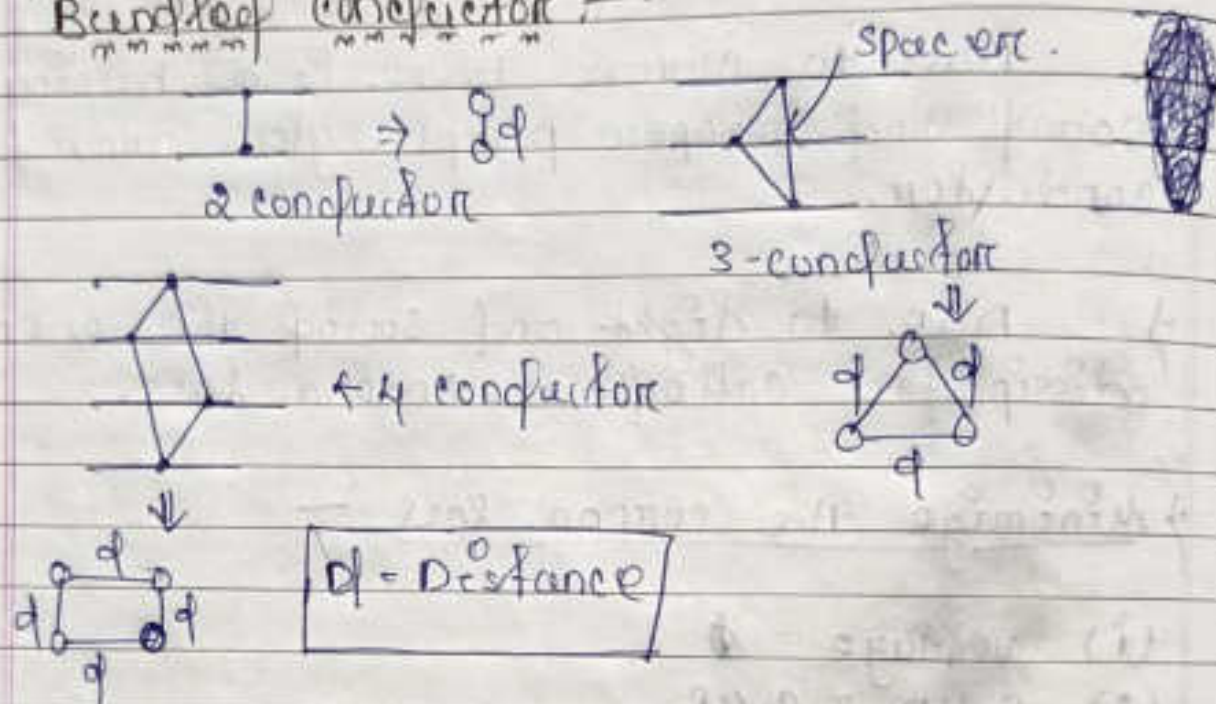 Bundled conductor :-
spacer.
⇒ d
2 conductor
3-conductor
⇓
← 4 conductor
d d
d
⇓
d
d d
d
d - Distance